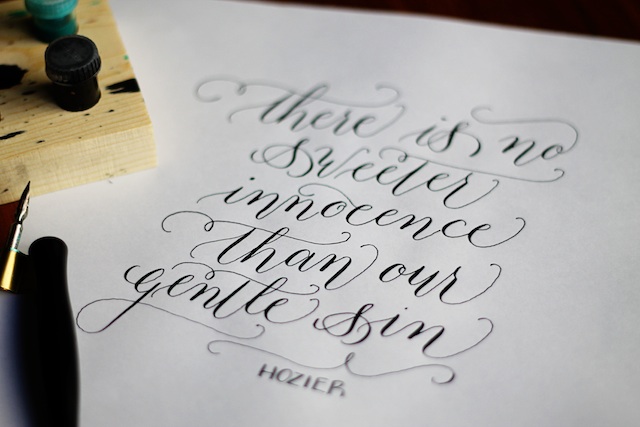 there is no
sweeter
innocence
than our
gentle sin
HOZIER